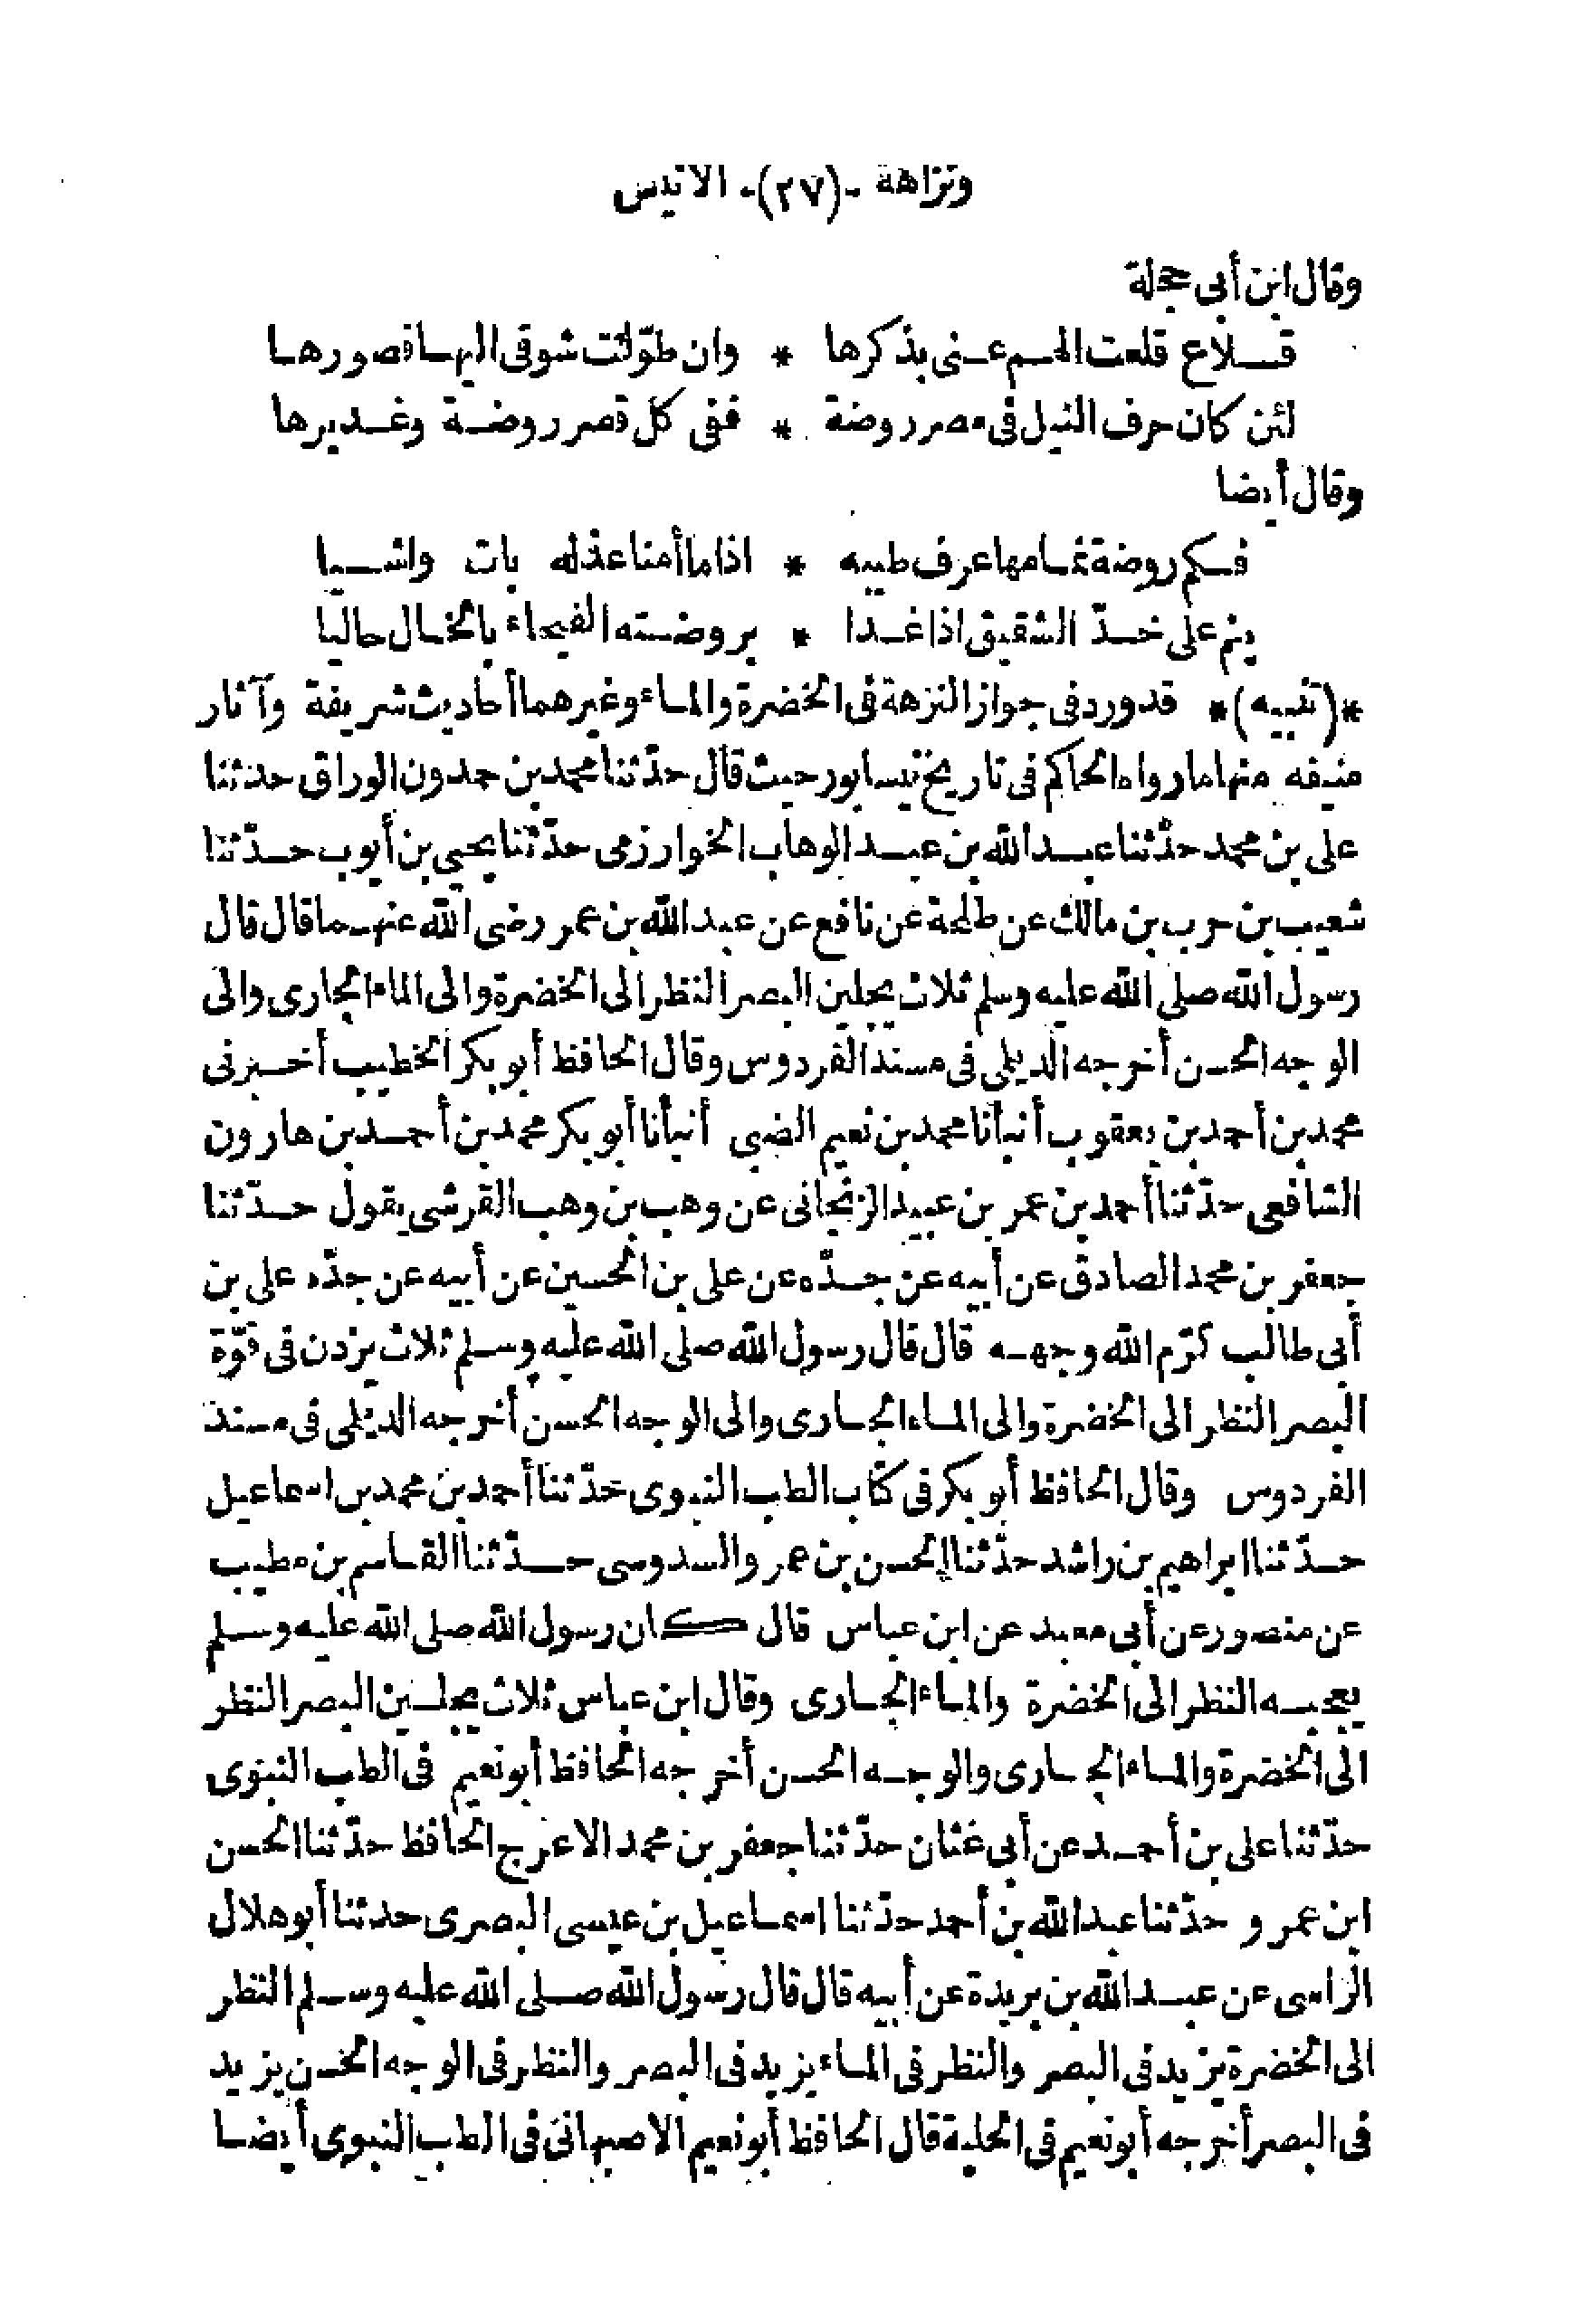 ونزاهة -(٢٧)- الانيس
وقال ابن أبي حجلة
قـلاع قلعت الهـم عـنى بذكرها * وان طوّلت شوقى اليهـا قصورهـا
لئن كان حرف النيل فى مصر روضة * ففى كل قصر روضـة وغـديرها
وقال أيضا
فـكم روضة غـامها عرف طيبه * اذا ما أمنا عذله بات واشـيا
ينم على خـدّ الشقيق اذا غـدا * بروضـته الفيحاء بالخـال حاليا
*(تنبيه)* قد ورد فى جواز النزهة فى الخضرة والمـاء وغيرهما أحاديث شريفة وآثار
منيفه منها ما رواه الحاكم فى تاريخ نيسابور حيث قال حدّثنا محمد بن حمدون الوراق حدثنا
على بن محمد حدّثنا عبـد الله بن عبـد الوهاب الخوارزمى حدّثنا يحيى بن أيوب حـدّثنا
شعيب بن حرب بن مالك عن طلحة عن نافع عن عبد الله بن عمر رضى الله عنهـما قال قال
رسول الله صلى الله عليه وسلم ثلاث يجلين البصر النظر الى الخضرة والى الماء الجارى والى
الوجه الحسن أخرجه الديلمى فى مسند الفردوس وقال الحافظ أبو بكر الخطيب أخـبرنى
محمد بن أحمد بن يعقوب أنبأنا محمد بن نعيم الضبى أنبأنا أبو بكر محمد بن أحـمد بن هارون
الشافعى حدّثنا أحمد بن عمر بن عبيد الزنجانى عن وهب بن وهب القرشى يقول حـدّثنا
جعفر بن محمد الصادق عن أبيه عن جـدّه عن على بن الحسين عن أبيه عن جدّه على بن
أبى طالب كرّم الله وجهـه قال قال رسول الله صلى الله عليه وسـلم ثلاث يزدن فى قوّة
البصر النظر الى الخضرة والى المـاء الجـارى والى الوجه الحسن أخرجه الديلمى فى مسند
الفردوس وقال الحافظ أبو بكر فى كتاب الطب النبوى حدّثنا أحمد بن محمد بن اسماعيل
حـدّثنا ابراهيم بن راشد حدّثنا الحسن بن عمرو السدوسى حـدّثنا القـاسم بن مطيب
عن منصور عن أبى معبد عن ابن عباس قال كـان رسول الله صلى الله عليه وسـلم
يعجبـه النظر الى الخضرة والمـاء الجـارى وقال ابن عباس ثلاث يجلـين البصر النظر
الى الخضرة والمـاء الجـارى والوجـه الحسن أخرجه الحافظ أبو نعيم فى الطب النبوى
حدّثنا على بن أحـمد عن أبى عثمان حدّثنا جعفر بن محمد الاعرج الحافظ حدّثنا الحسن
ابن عمرو حدّثنا عبد الله بن أحمد حدّثنا اسمـاعيل بن عيسى البصرى حدثنا أبو هلال
الراسى عن عبـد الله بن بريدة عن أبيه قال قال رسول الله صـلى الله عليه وسـلم النظر
الى الخضرة يزيد فى البصر والنظر فى المـاء يزيد فى البصر والنظر فى الوجه الحسن يزيد
فى البصر أخرجه أبو نعيم فى الحلية قال الحافظ أبو نعيم الاصبهانى فى الطب النبوى أيضـا